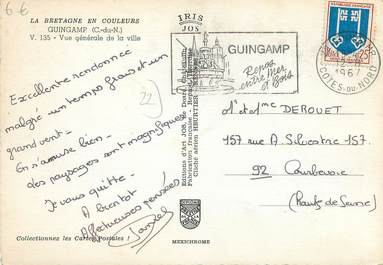 6-6
LA BRETAGNE EN COULEURS
GUINGAMP (C.-du-N.)
V. 135 - Vue générale de la ville
Excellente randonnée
malgré un temps frais et un
grand vent -
On s'amuse bien -
des paysages sont magnifiques
Je vous quitte -
A bientôt
Affectueuses pensées
Collectionnez les Cartes Postales !
22
IRIS
JOY
Éditions d'Art JOS
Fabrication française
MEXICHROME
GUINGAMP
Repos
entre Mer
et Bois
RÉPUBLIQUE FRANÇAISE
1967
COTES-DU-NORD
Mr et Mme DEROUET
157 rue A. Silvestre 157.
92 Courbevoie
(Hauts de Seine)